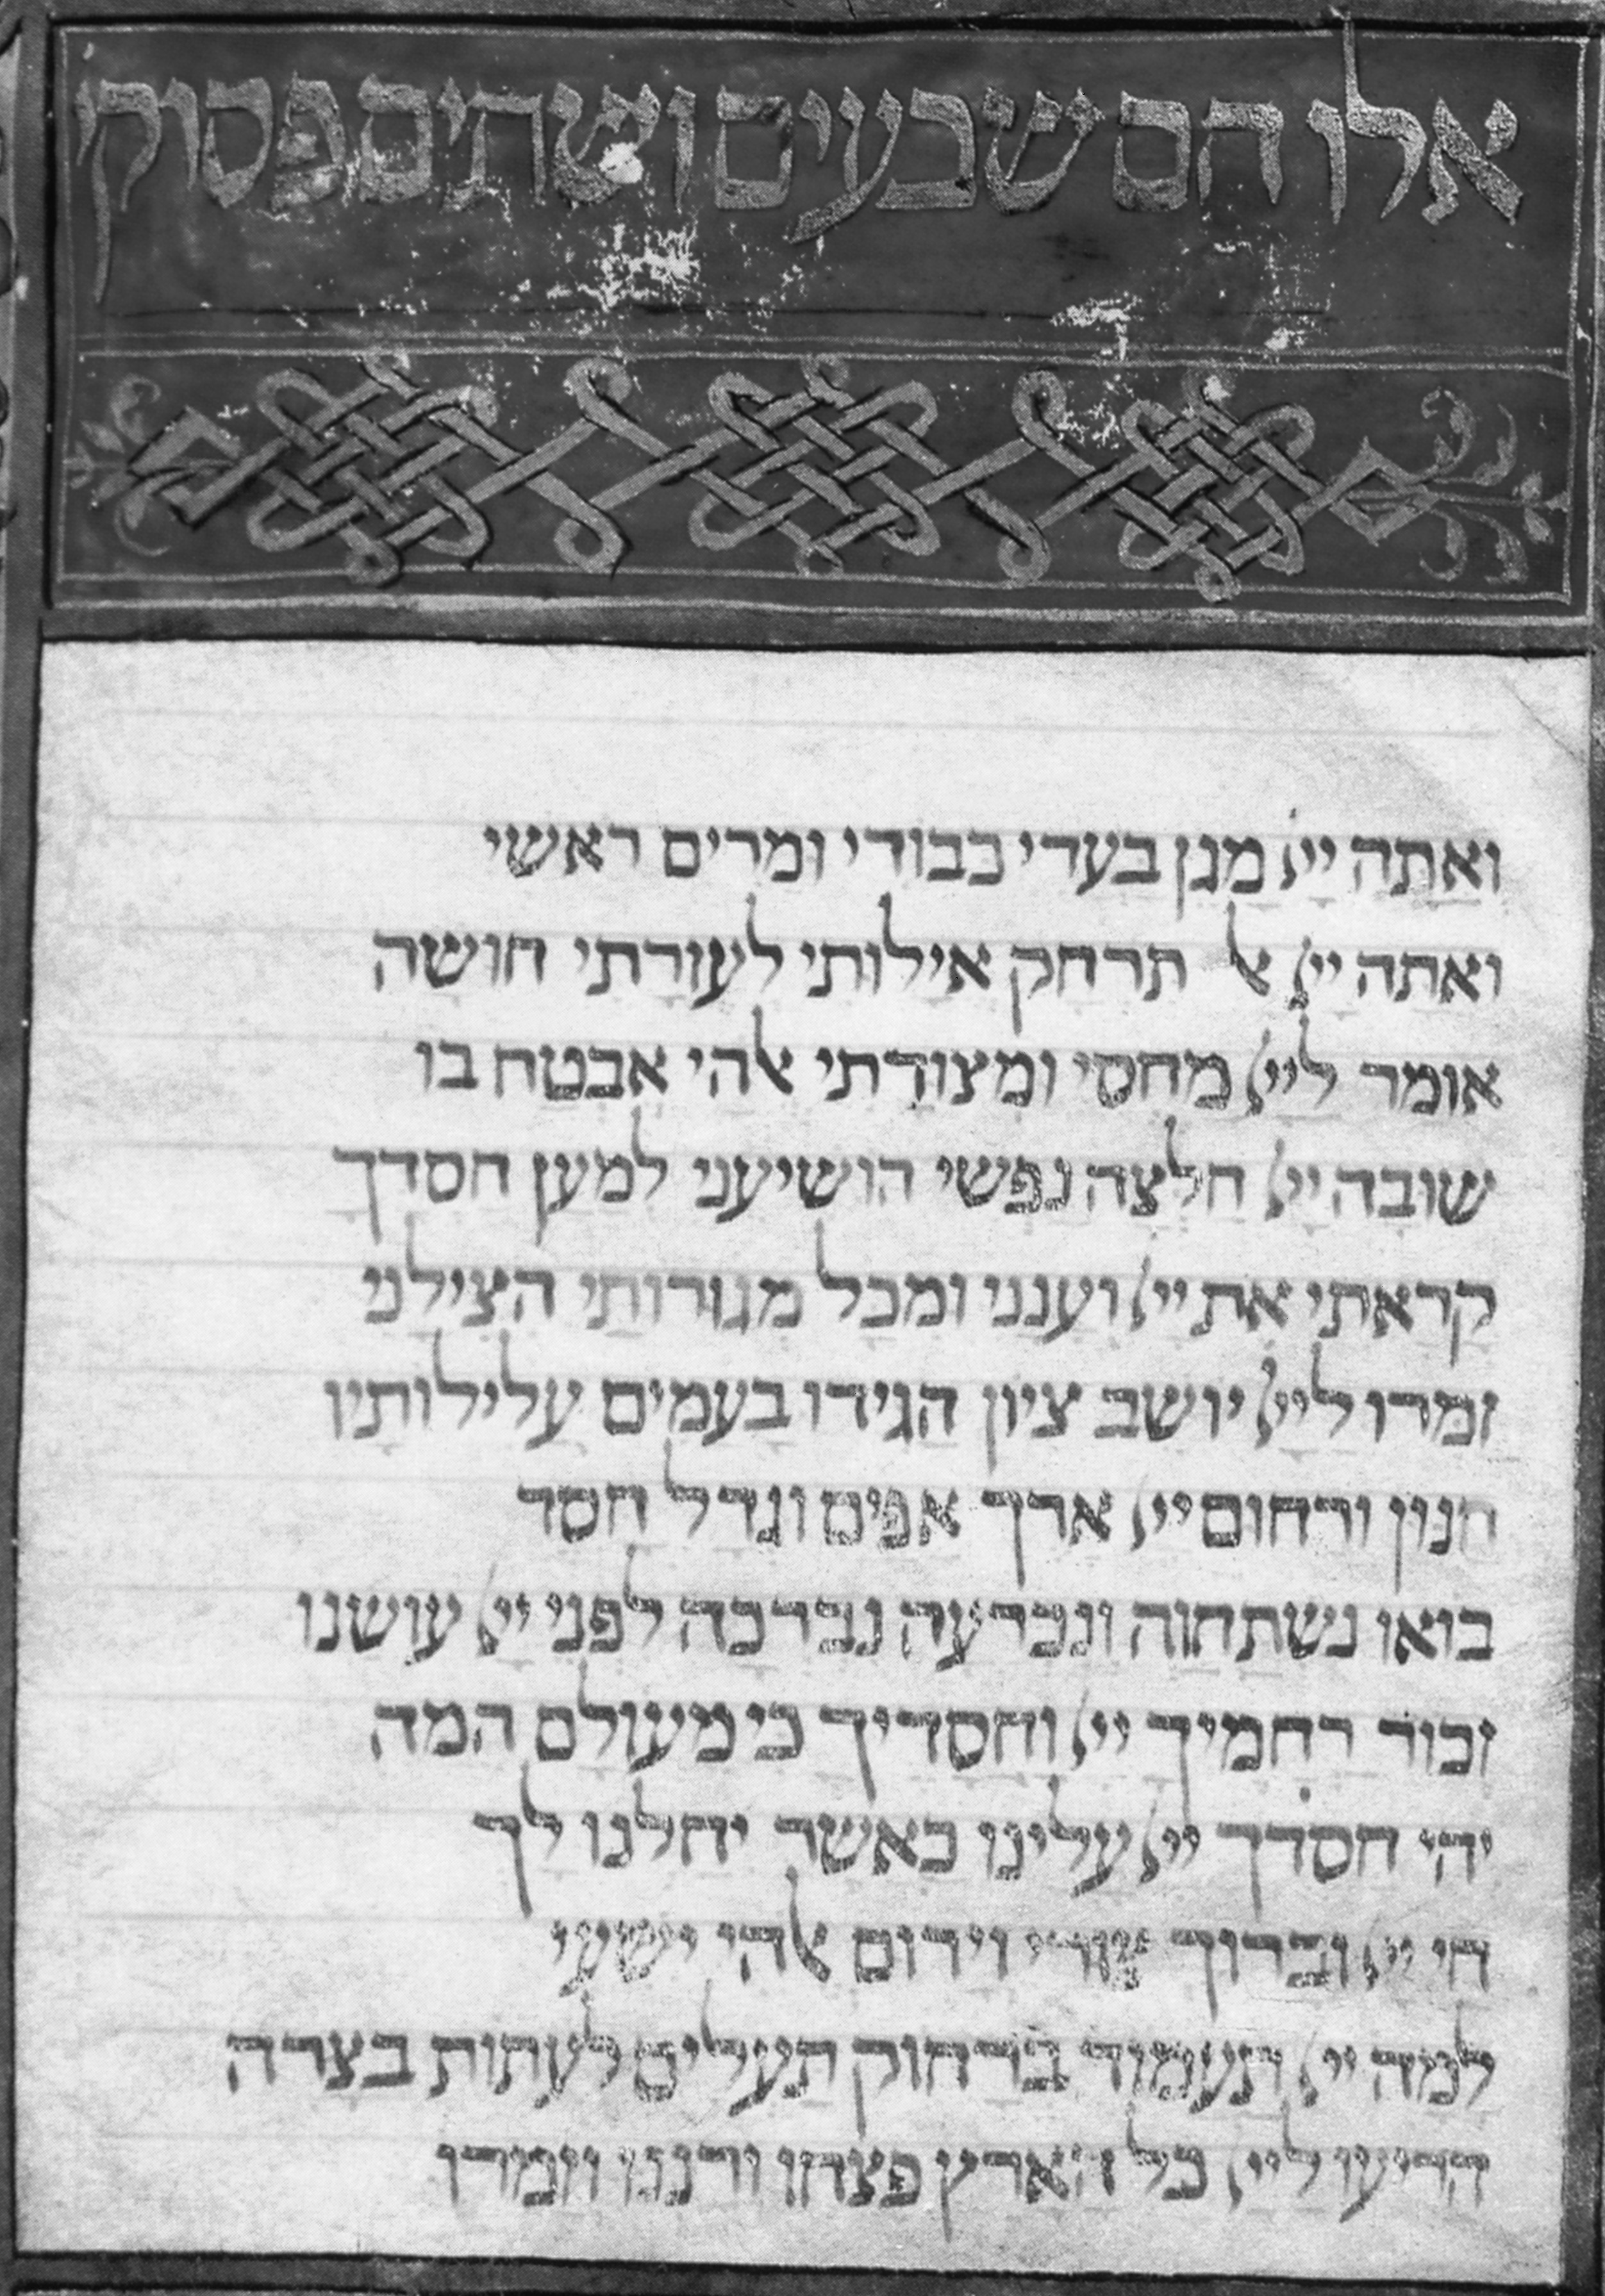 אלו הם שבעים ושתים פסוק
ואתה ייי מגן בעדי כבודי ומרים ראשי
ואתה ייי אל תרחק אילותי לעזרתי חושה
אומר לייי מחסי ומצודתי אלהי אבטח בו
שובה ייי חלצה נפשי הושיעני למען חסדך
קראתי את ייי וענני ומכל מגורותי הצילני
זמרו לייי יושב ציון הגידו בעמים עלילותיו
חנון ורחום ייי ארך אפים וגדל חסד
בואו נשתחוה ונכרעה נברכה לפני ייי עושנו
זכור רחמיך ייי וחסדיך כי מעולם המה
יהי חסדך ייי עלינו כאשר יחלנו לך
חי ייי וברוך צורי וירום אלהי ישעי
למה ייי תעמוד ברחוק תעלים לעתות בצרה
הריעו לייי כל הארץ פצחו ורננו וזמרו